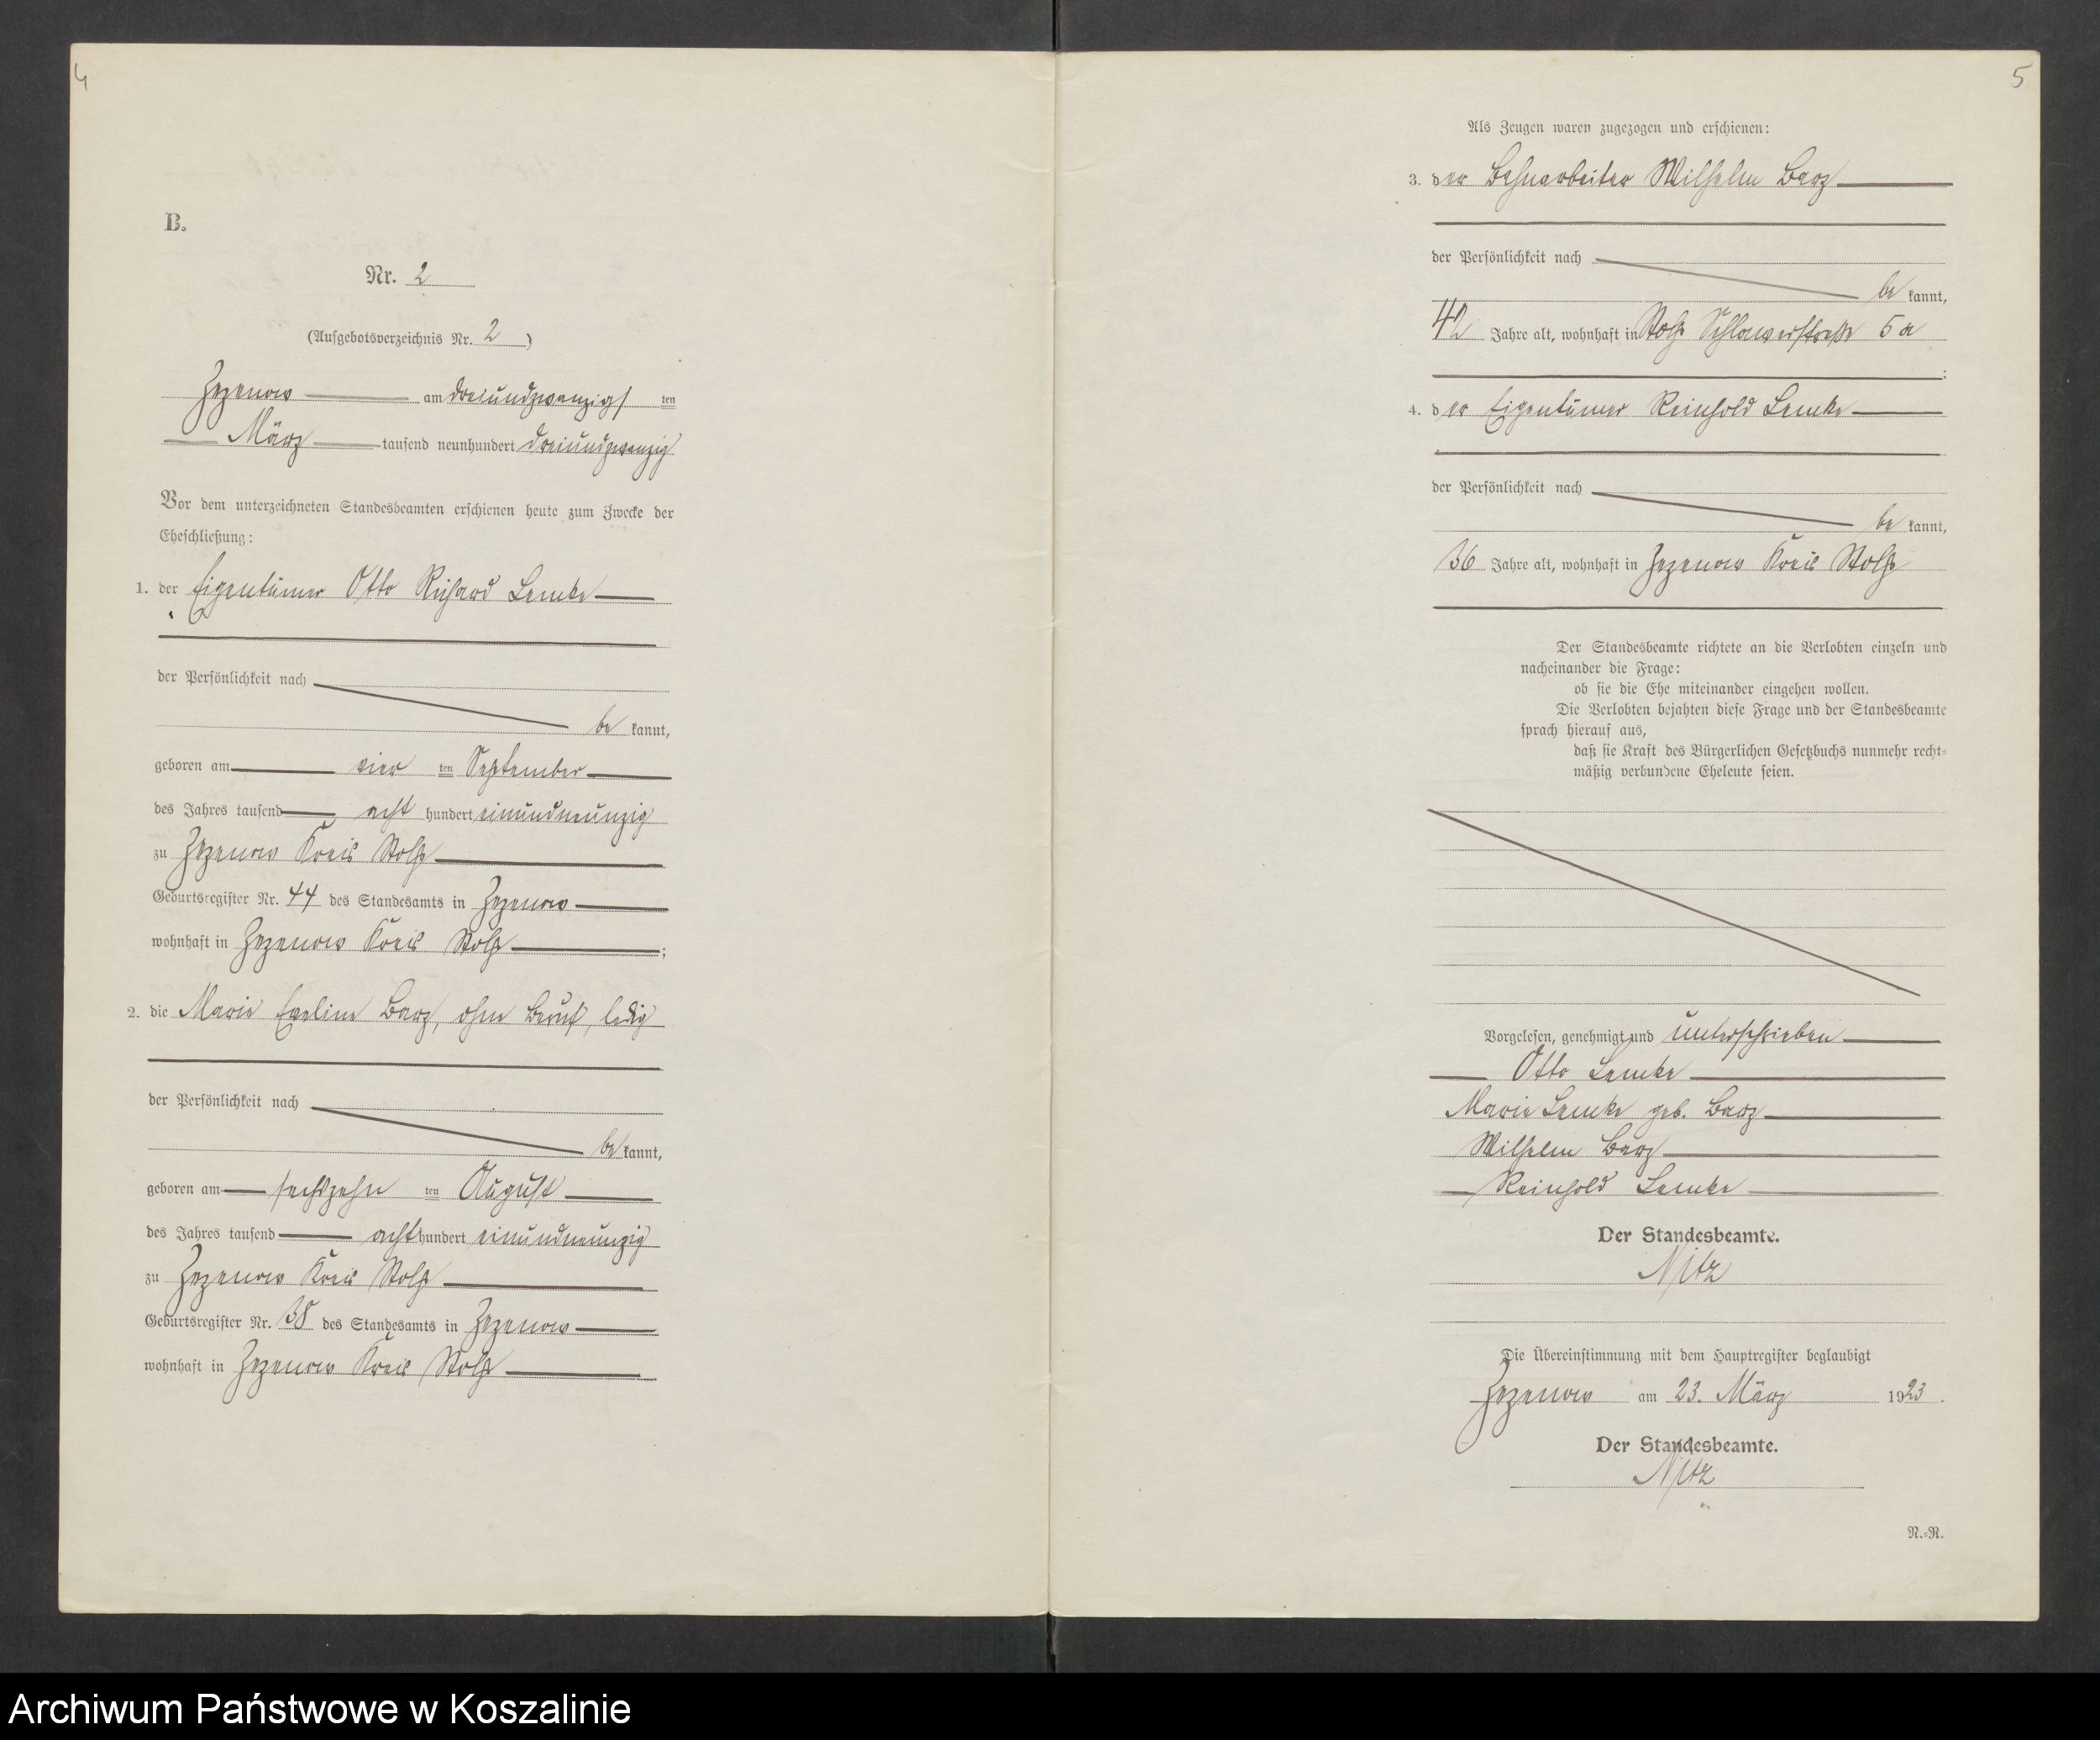 4
B.
Nr. 2
(Aufgebotsverzeichnis Nr. 2)
Zezenow am dreiundzwanzigsten
März tausend neunhundert dreiundzwanzig
Vor dem unterzeichneten Standesbeamten erschienen heute zum Zwecke der
Eheschließung:
1. der Eigentümer Otto Richard Lemke
der Persönlichkeit nach
be kannt,
geboren am vier ten September
des Jahres tausend acht hundert einundneunzig
zu Zezenow Kreis Stolp
Geburtsregister Nr. 44 des Standesamts in Zezenow
wohnhaft in Zezenow Kreis Stolp;
2. die Marie Eveline Barz, ohne Beruf, ledig
der Persönlichkeit nach
be kannt,
geboren am sechszehn ten August
des Jahres tausend acht hundert einundneunzig
zu Zezenow Kreis Stolp
Geburtsregister Nr. 38 des Standesamts in Zezenow
wohnhaft in Zezenow Kreis Stolp
5
Als Zeugen waren zugezogen und erschienen:
3. der Bahnarbeiter Wilhelm Barz
der Persönlichkeit nach
be kannt,
42 Jahre alt, wohnhaft in Stolp Schlawerstraße 5a
;
4. der Eigentümer Reinhold Lemke
der Persönlichkeit nach
be kannt,
36 Jahre alt, wohnhaft in Zezenow Kreis Stolp
Der Standesbeamte richtete an die Verlobten einzeln und
nacheinander die Frage:
ob sie die Ehe miteinander eingehen wollen.
Die Verlobten bejahten diese Frage und der Standesbeamte
sprach hierauf aus,
daß sie Kraft des Bürgerlichen Gesetzbuchs nunmehr recht-
mäßig verbundene Eheleute seien.
Vorgelesen, genehmigt und unterschrieben
Otto Lemke
Marie Lemke geb. Barz
Wilhelm Barz
Reinhold Lemke
Der Standesbeamte.
Nitz
Die Übereinstimmung mit dem Hauptregister beglaubigt
Zezenow am 23. März 1923.
Der Standesbeamte.
Nitz
N.-R.
Archiwum Państwowe w Koszalinie